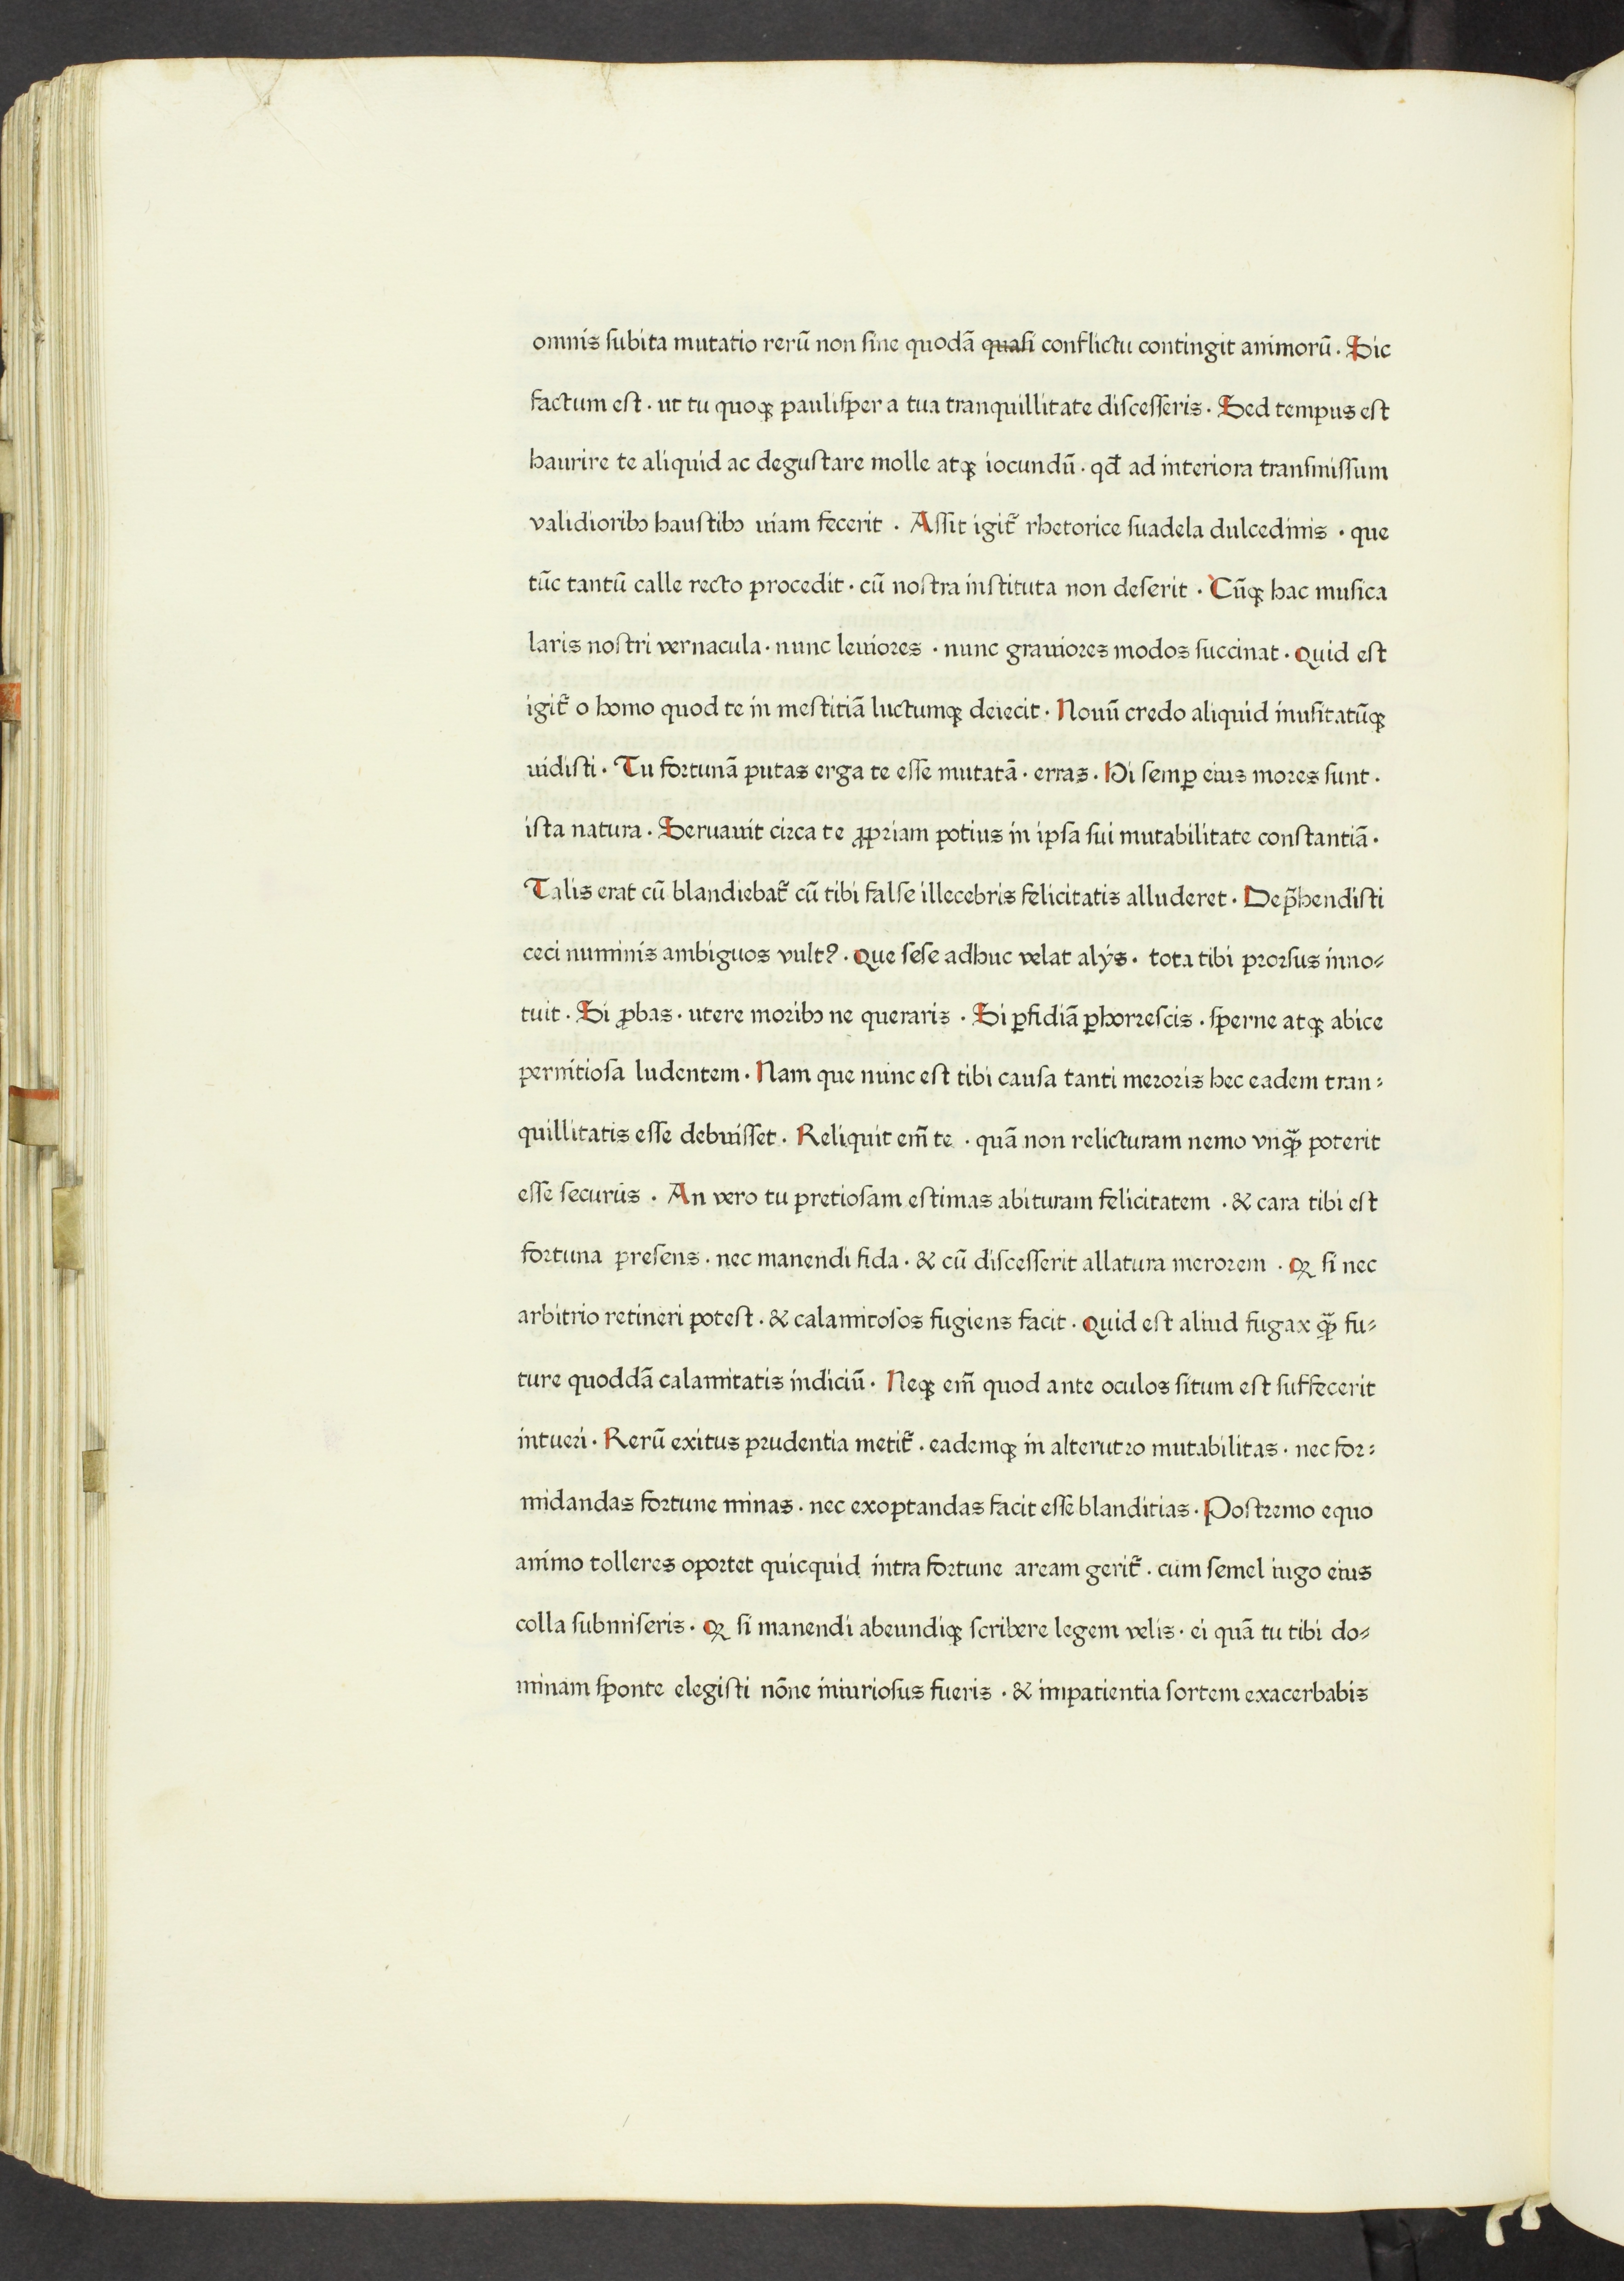 omnis ſubita mutatio rerū non ſine quodā quaſi conflictu contingit animorū · Sic
factum eſt · ut tu quoqꝫ pauliſper a tua tranquillitate diſceſſeris · Sed tempus eſt
haurire te aliquid ac deguſtare molle atqꝫ iocundū · qd̄ ad interiora tranſmiſſum
validioribꝫ hauſtibꝫ uiam fecerit · Aſſit igit̃ rhetorice ſuadela dulcedinis · que
tūc tantū calle recto procedit · cū noſtra inſtituta non deſerit · Cūqꝫ hac muſica
laris noſtri vernacula · nunc leuiores · nunc grauiores modos ſuccinat · Quid eſt
igit̃ o homo quod te in meſtitiā luctumqꝫ deiecit · Nouū credo aliquid inuſitatūqꝫ
uidiſti · Tu fortunā putas erga te eſſe mutatā · erras · Hi ſemꝑ eius mores ſunt ·
iſta natura · Seruauit circa te ꝓpriam potius in ipſa ſui mutabilitate conſtantiā ·
Talis erat cū blandiebat̃ cū tibi falſe illecebris felicitatis alluderet · Dep̃hendiſti
ceci numinis ambiguos vultꝰ · Que ſeſe adhuc velat alÿs · tota tibi prorſus inno⸗
tuit · Si ꝓbas · utere moribꝫ ne queraris · Si ꝑfidiā ꝑhorreſcis · ſperne atqꝫ abice
pernitioſa ludentem · Nam que nunc eſt tibi cauſa tanti meroris hec eadem tran⸗
quillitatis eſſe debuiſſet · Reliquit em̄ te · quā non relicturam nemo vnqꝫ̃ poterit
eſſe ſecurus · An vero tu pretioſam eſtimas abituram felicitatem · & cara tibi eſt
fortuna preſens · nec manendi fida · & cū diſceſſerit allatura merorem · Qꝫ ſi nec
arbitrio retineri poteſt · & calamitoſos fugiens facit · Quid eſt aliud fugax qꝫ̃ fu⸗
ture quoddā calamitatis indiciū · Neqꝫ em̄ quod ante oculos ſitum eſt ſuffecerit
intueri · Rerū exitus prudentia metit̃ · eademqꝫ in alterutro mutabilitas · nec for⸗
midandas fortune minas · nec exoptandas facit eſſe blanditias · Poſtremo equo
animo tolleres oportet quicquid intra fortune aream gerit̃ · cum ſemel iugo eius
colla ſubmiſeris · Qꝫ ſi manendi abeundiqꝫ ſcribere legem velis · ei quā tu tibi do⸗
minam ſponte elegiſti nōne iniurioſus fueris · & impatientia ſortem exacerbabis